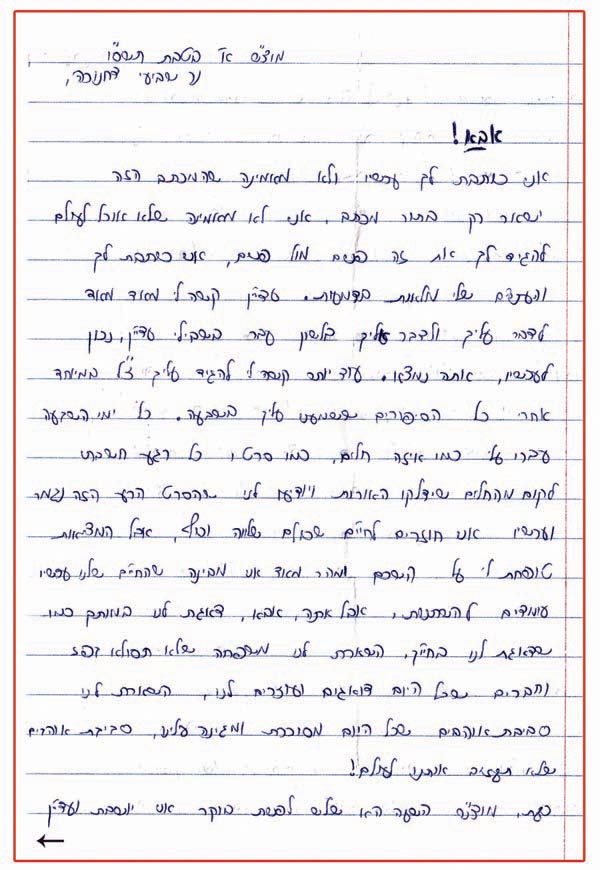 מוצ״ש א׳ בטבת תשס״ו
נר שביעי דחנוכה,
אבא!
אני כותבת לך עכשיו ולא מאמינה שהמכתב הזה
ישאר רק בתור מכתב, אני לא מאמינה שלא אוכל לעולם
להגיד לך את זה פנים מול פנים, אני כותבת לך
והעינים שלי מלאות בדמעות. עדיין קשה לי מאוד מאוד
לדבר עליך ולדבר עליך בלשון עבר בשבילי עדיין, נכון
לעכשיו, אתה נמצא. עוד יותר קשה לי להגיד עליך ז״ל במיוחד
אחרי כל הסיפורים ששמענו עליך בשבעה. כל ימי השבעה
עברו עלי כמו איזה חלום, כמו סרט, כל רגע חשבתי
לקום מהחלום שידלקו האורות ויודיעו לנו שהסרט הרע הזה נגמר
ועכשיו אנו חוזרים לחיים שכולם שלווה וכיף, אבל המציאות
טופחת לי על השכם ומהר מאוד אני מבינה שהחיים שלנו עכשיו
עומדים להשתנות, אבל אתה, אבא, דאגת לנו במותך כמו
שדאגת לנו בחייך, השארת לנו משפחה שלא תסולא בפז
וחברים שכל היום דואגים ועוזרים לנו, השארת לנו
סביבת אוהבים שכל היום מסוככת ומגינה עלינו, סביבת אוהבים
שלא תעזוב אותנו לעולם!
כעת, מוצ״ש השעה היא שלוש לפנות בוקר אני יושבת ועדיין